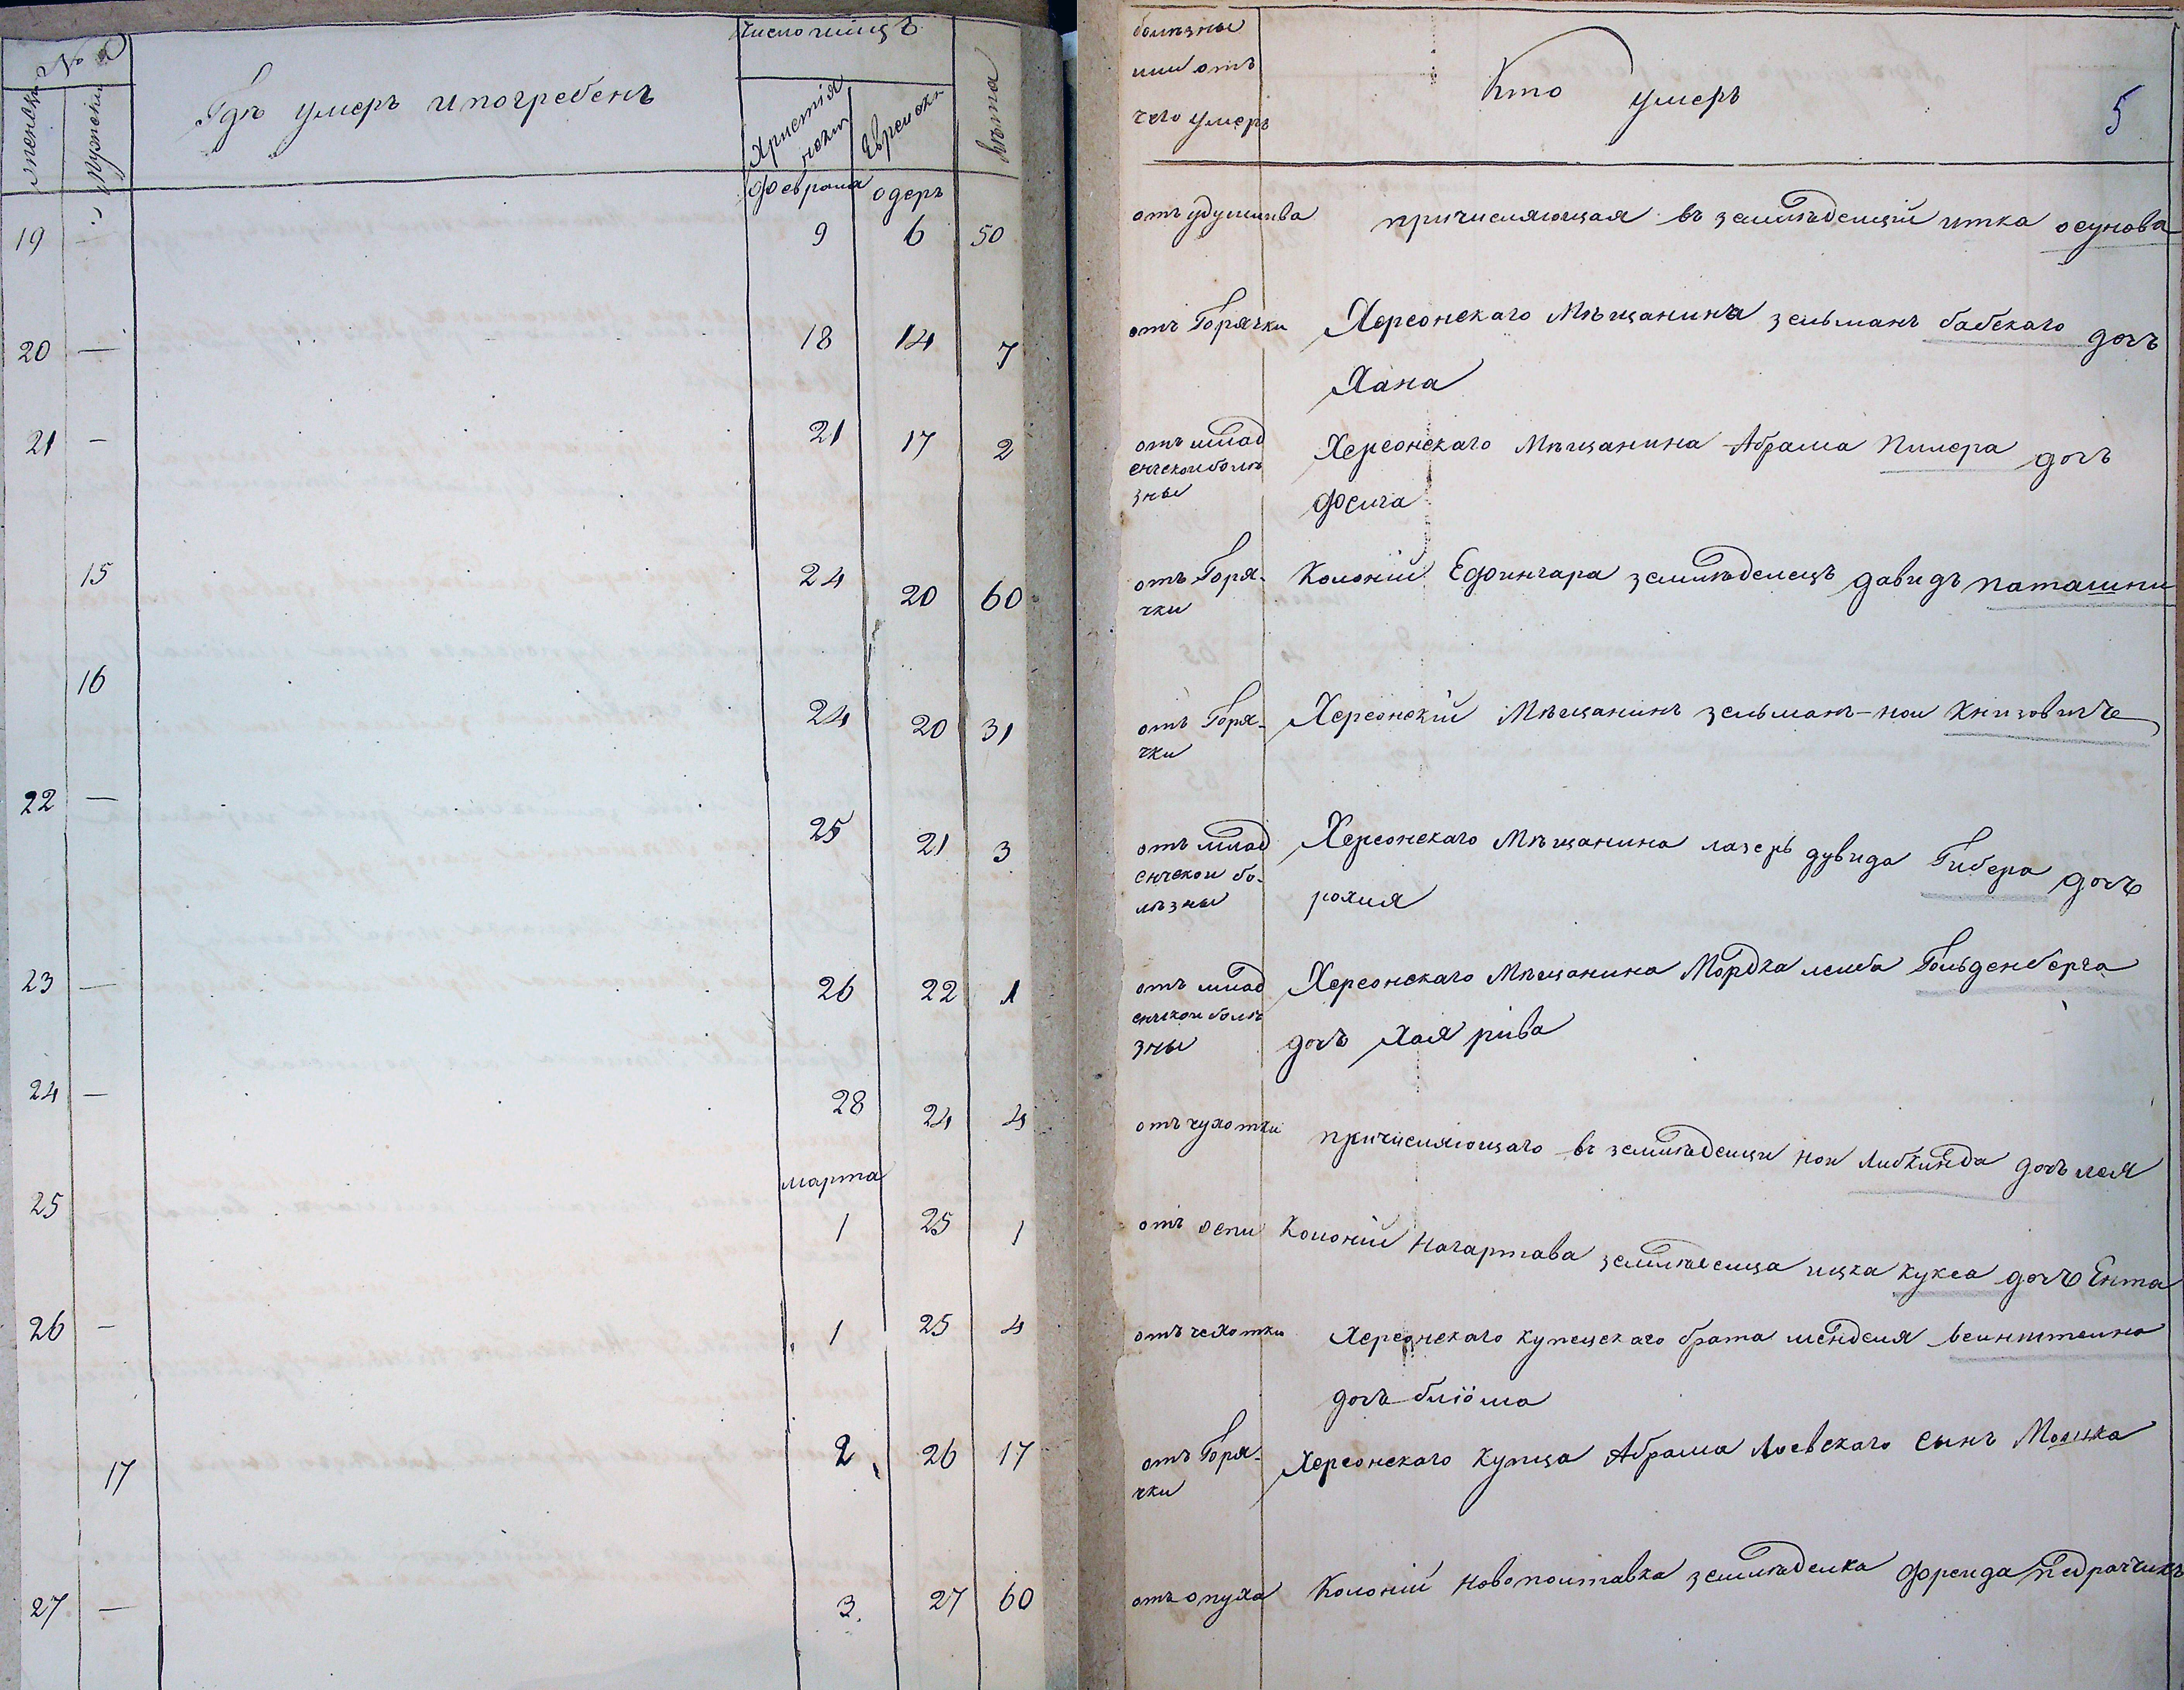 №
Женска Мужеска
Гдѣ умеръ и погребенъ
Число и мцѣ
Христiя
нски
Еврейски
Лѣта
болѣзны
или отъ
чего умеръ
Кто умеръ
5
февраля одеръ
19 — 9 6 50
отъ удушлива причисляющая въ земледелцiй итка осунова
20 — 18 14 7
отъ Горячки Херсонскаго Мѣщанина зельманъ бабскаго дочъ
Хана
21 — 21 17 2
отъ млад
енческои болѣ
зны
Херсонскаго Мѣщанина Абрама Пилера дочъ
Фейга
15 24 20 60
отъ Горя-
чки
Колонiй Ефингара земледелецъ давидъ паташни
16 24 20 31
отъ Горя-
чки
Херсонскiй Мѣщанинъ зельманъ-нои Книзовиче
22 — 25 21 3
отъ млад
енческои бо-
лѣзны
Херсонскаго Мѣщанина лазеръ дувида Гибера дочъ
рохля
23 — 26 22 1
отъ млад
енчскои болѣ
зны
Херсонскаго Мѣщанина Мордка лейба Гольденберга
дочъ Хая рива
24 — 28 24 4
отъ чухотки причисляющаго въ земледелци нои Либкинда дочъ лея
марта
25 1 25 1
отъ оспи Колонiй Нагартава земледелца ицка Кукса дочъ Ента
26 — 1 25 4
отъ чехотки Херсонскаго купецскаго брата менделя веинштеина
дочъ блiома
17 2 26 17
отъ Горя-
чки
Херсонскаго Купца Абрама Лоевскаго сынъ Мошка
27 — 3. 27 60
отъ опуха Колонiй Новополтавка земледелка фреида педраччикъ